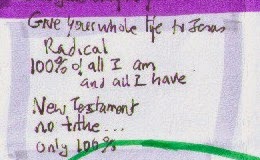 Give your whole life to Jesus
Radical
100% of all I am
and all I have
New Testament
no tithe...
only 100%